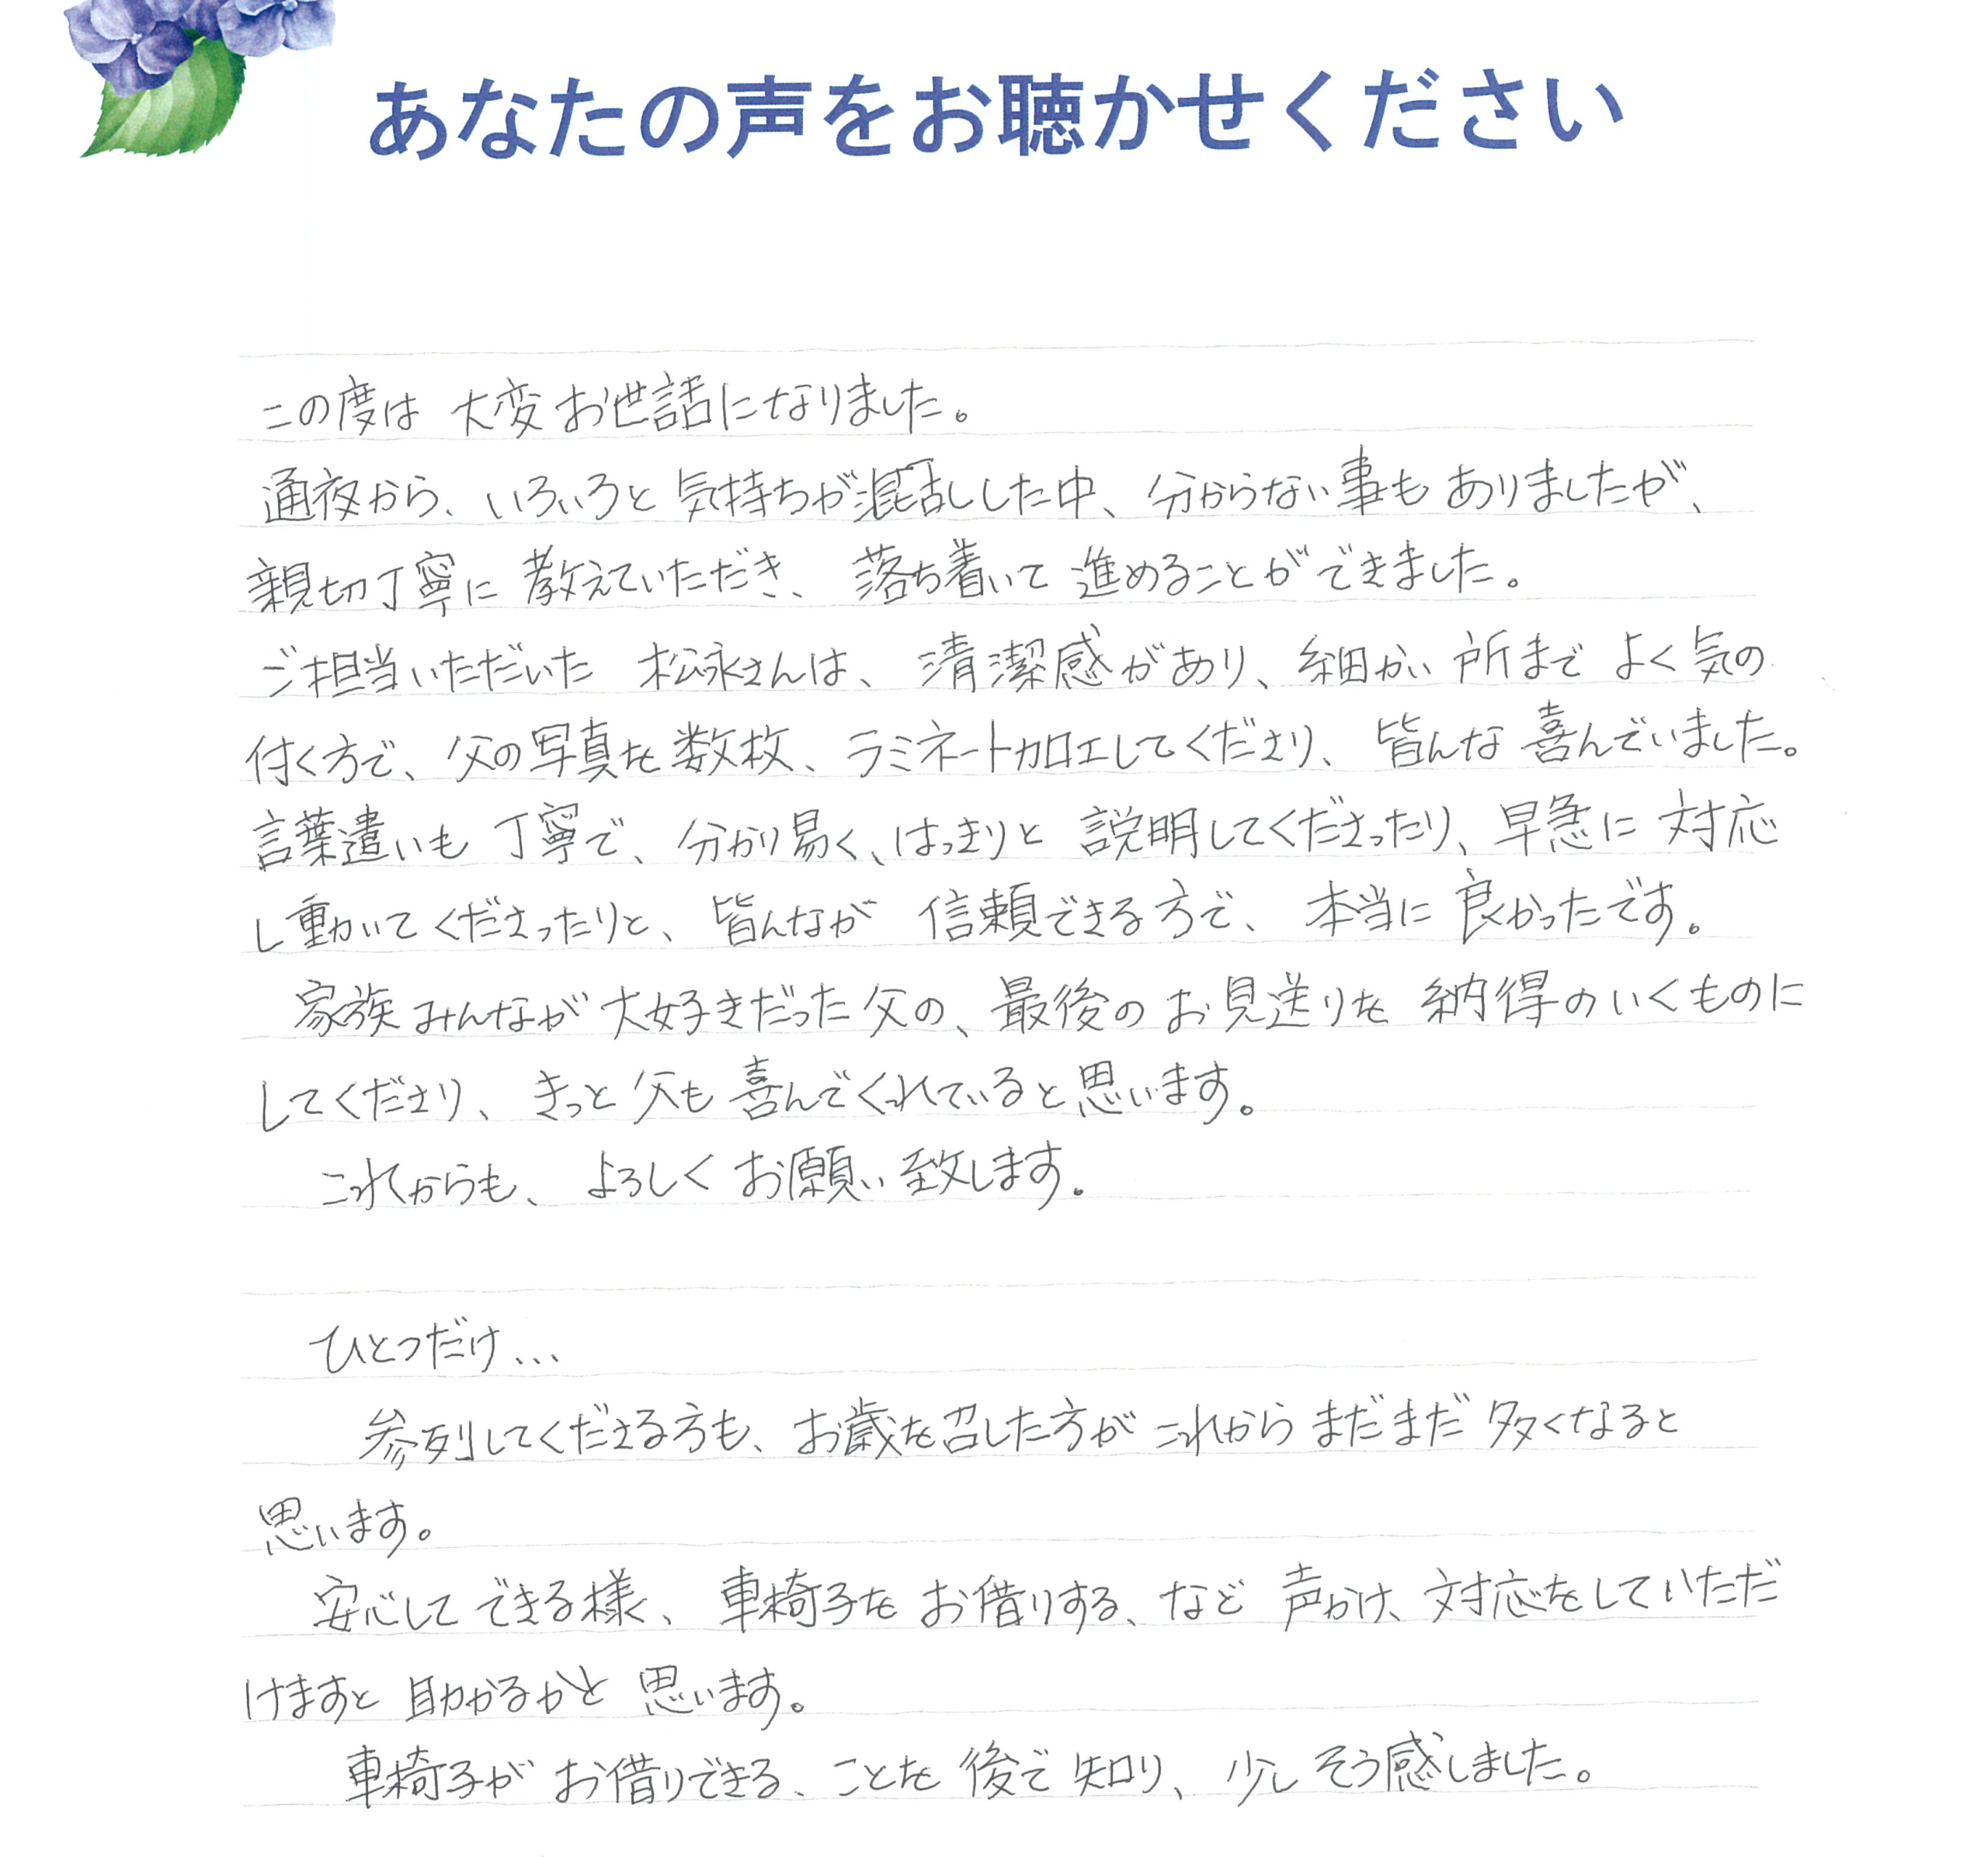 あなたの声をお聴かせください
この度は 大変お世話になりました。
通夜から、いろいろと気持ちが混乱しした中、分からない事もありましたが、
親切丁寧に教えていただき、落ち着いて進めることができました。
ご担当いただいた 松永さんは、清潔感があり、細かい所までよく気の
付く方で、父の写真を数枚、ラミネート加工してくださり、皆んな喜んでいました。
言葉遣いも丁寧で、分かり易く、はっきりと説明してくださったり、早急に対応
し動いてくださったりと、皆んなが信頼できる方で、本当に良かったです。
家族みんなが大好きだった父の、最後のお見送りを納得のいくものに
してくださり、きっと父も喜んでくれていると思います。
これからも、よろしくお願い致します。
ひとつだけ…
参列してくださる方も、お歳を召した方がこれからまだまだ多くなると
思います。
安心してできる様、車椅子をお借りする、など声かけ、対応をしていただ
けますと助かるかと思います。
車椅子がお借りできる、ことを後で知り、少しそう感じました。